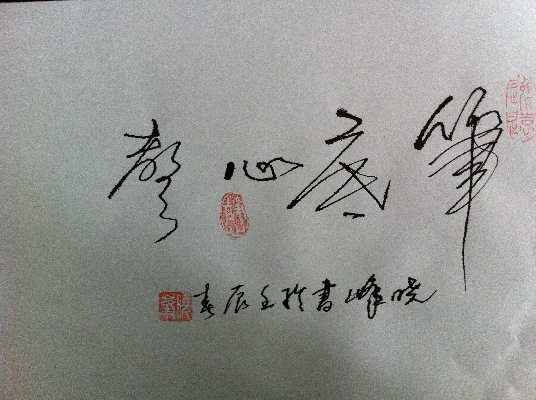 筆底心聲
晓峰書於壬辰春